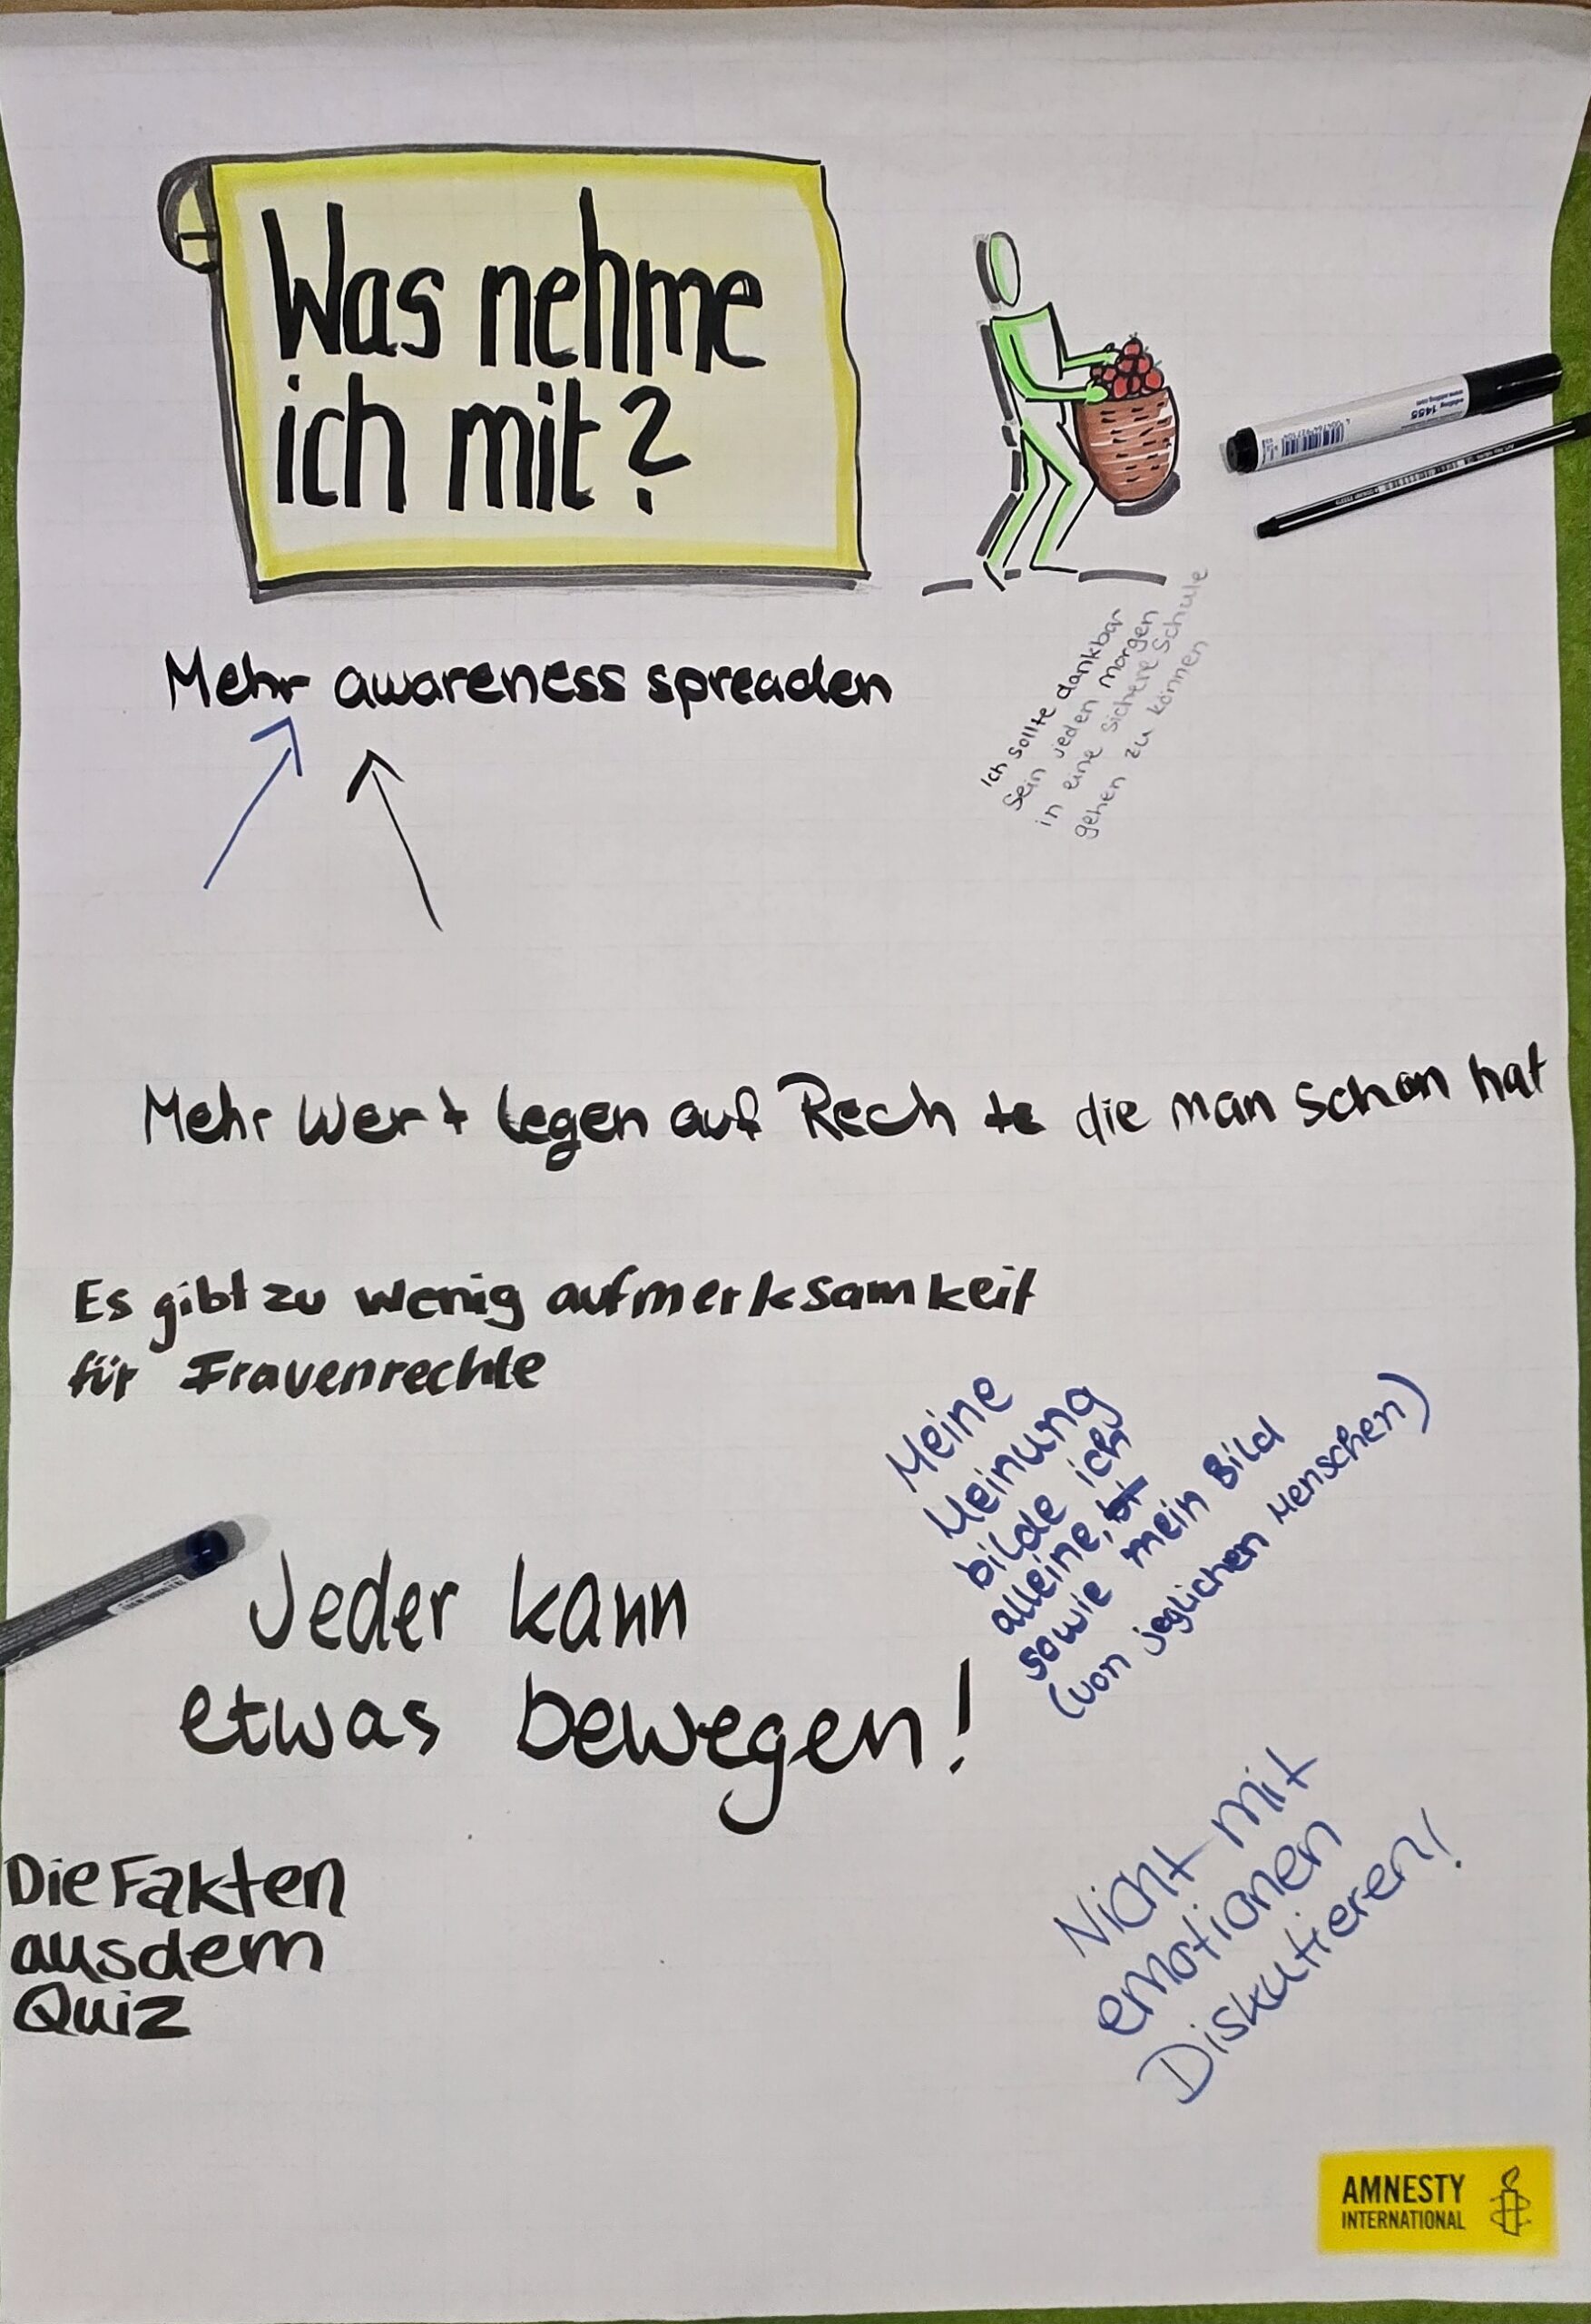 Was nehme
ich mit?
edding 1455
www.edding.com
Mehr awareness spreaden
Ich sollte dankbar
sein jeden morgen
in eine sichere Schule
gehen zu können
Mehr Wert legen auf Rechte die man schon hat
Es gibt zu wenig aufmerksamkeit
für Frauenrechte
Meine
Meinung
bilde ich
alleine, bi
sowie mein Bild
(von jeglichen Menschen)
Jeder kann
etwas bewegen!
Die Fakten
aus dem
Quiz
Nicht mit
emotionen
Diskutieren!
AMNESTY
INTERNATIONAL